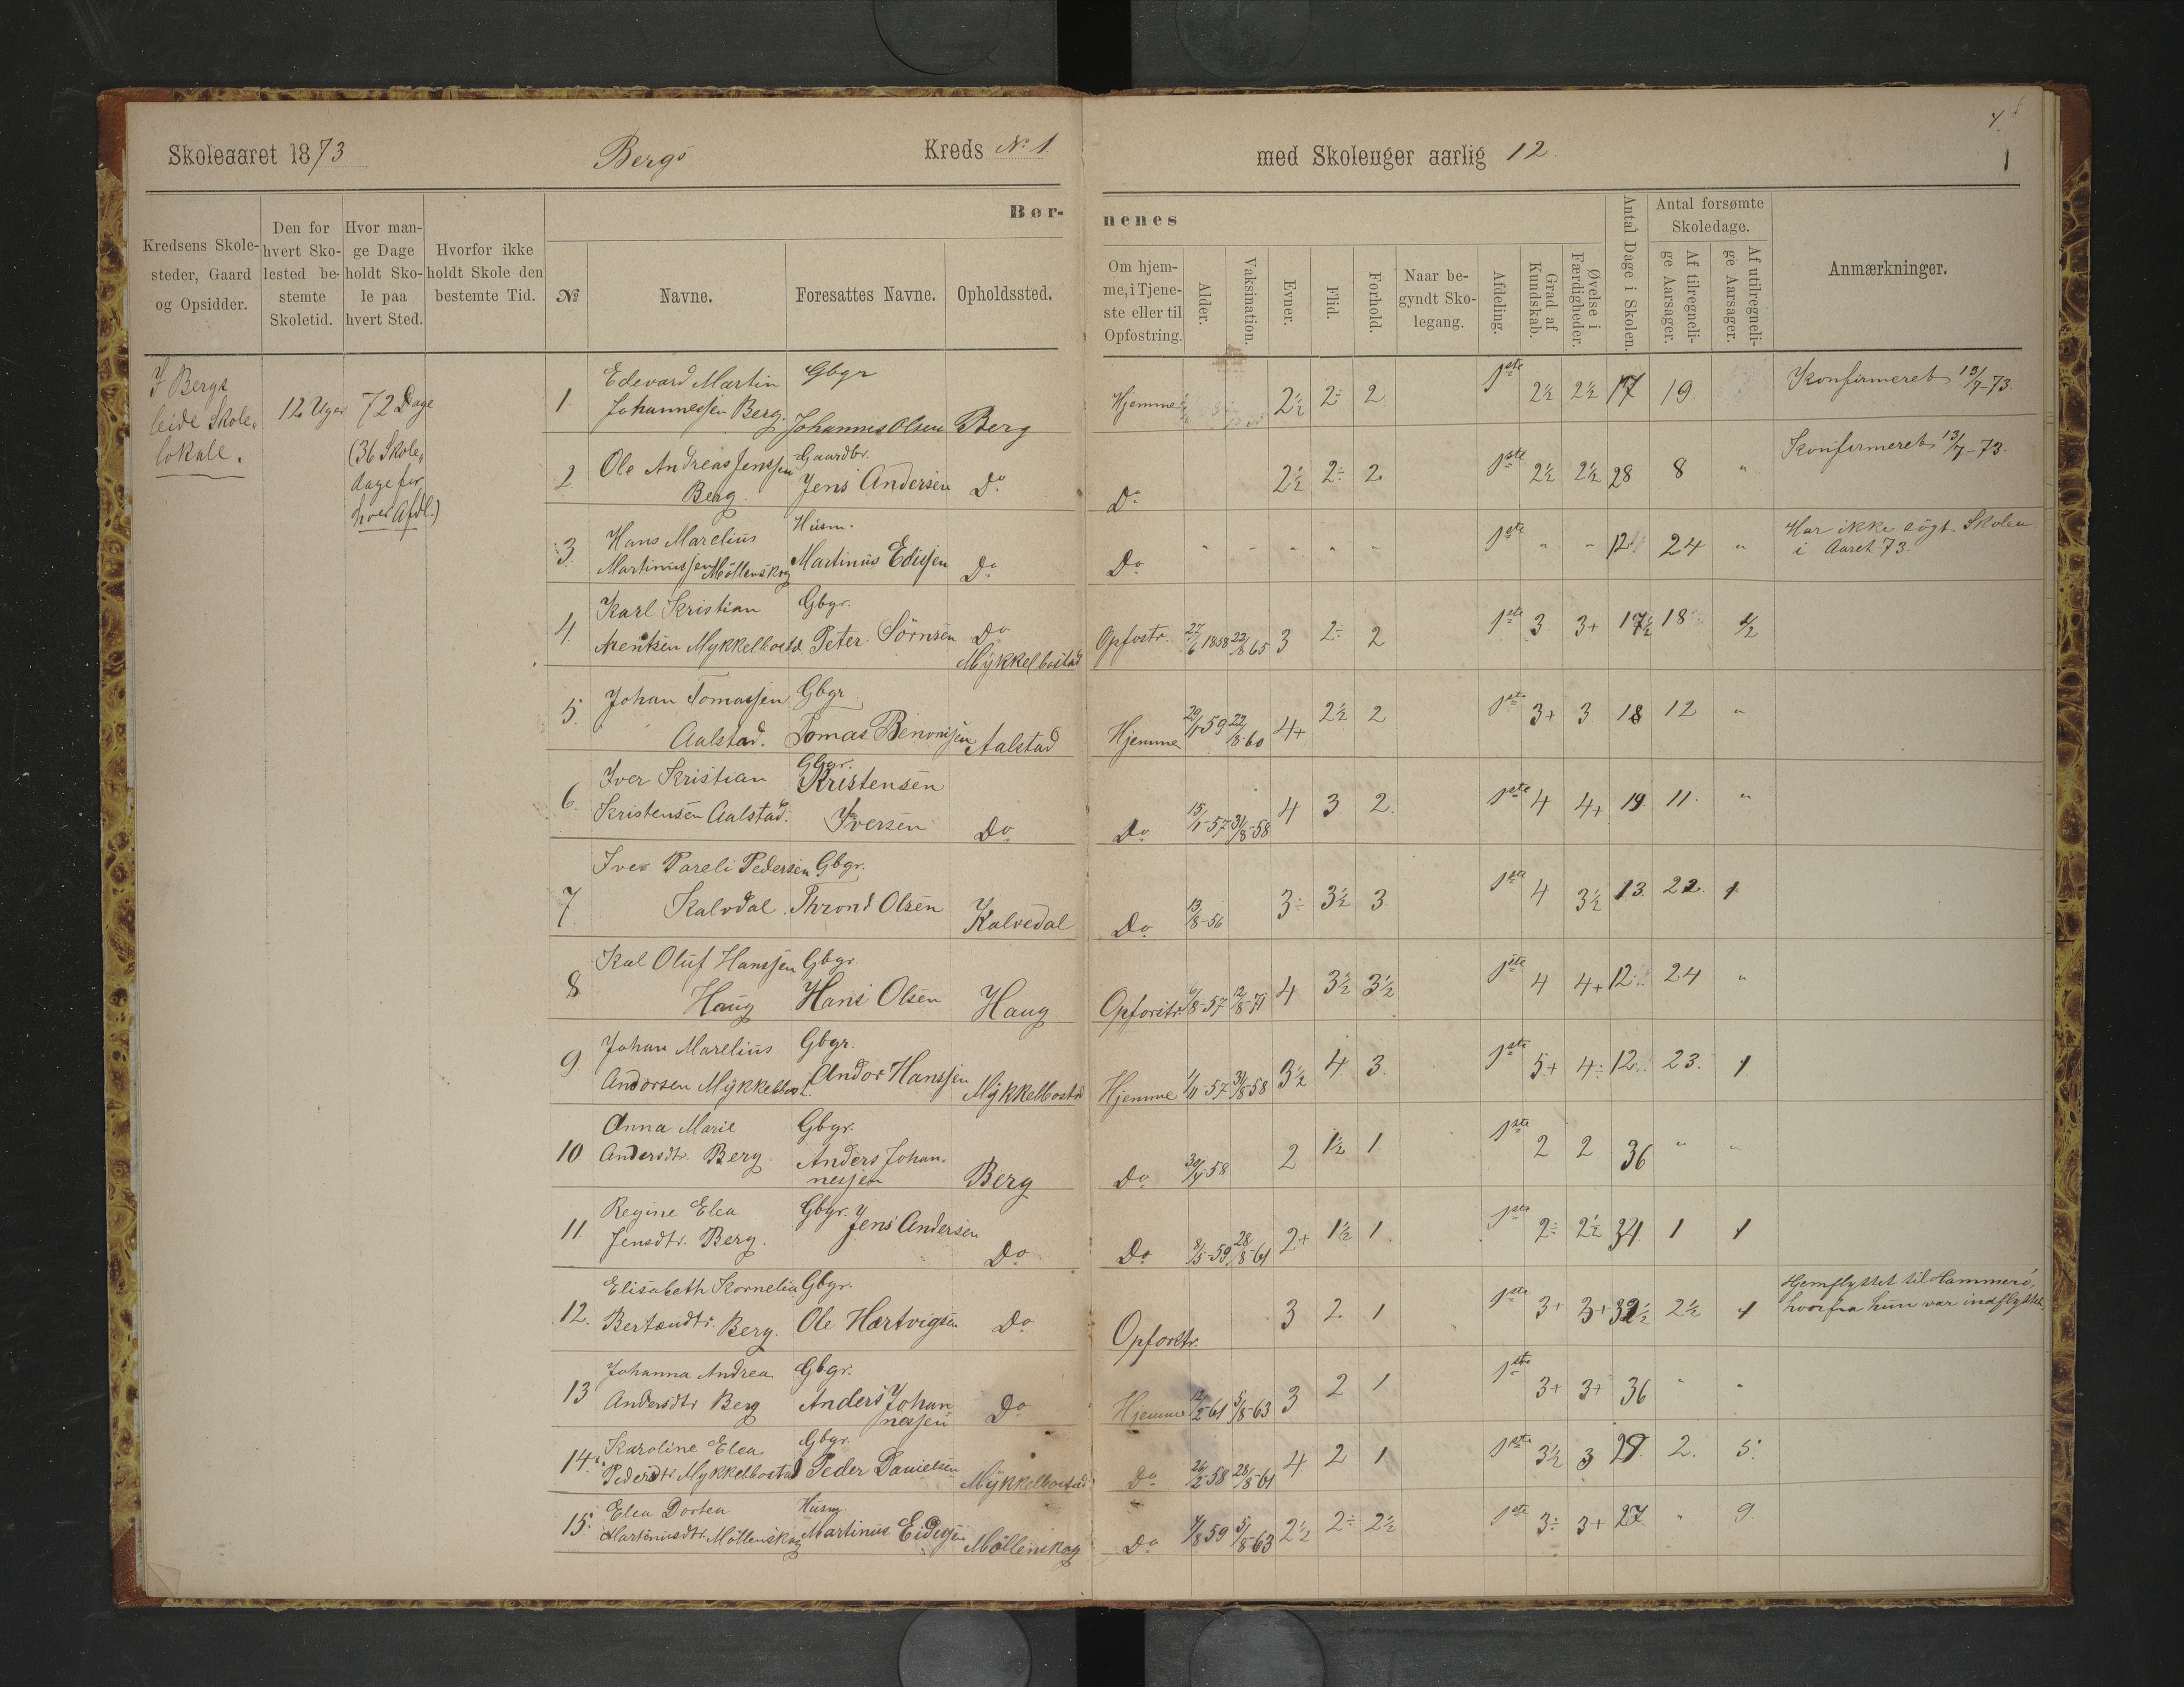 Skoleaaret 1873 Bergs Kreds No 1
med Skoleuger aarlig 12.
1
Kredsens Skolesteder, Gaard og Opsidder.
Den for hvert Skolested bestemte Skoletid.
Hvor mange Dage holdt Skole paa hvert Sted.
Hvorfor ikke holdt Skole den bestemte Tid.
Bør-
nenes
No
Navne.
Foresattes Navne.
Opholdssted.
Om hjemme, i Tjeneste eller til Opfostring.
Alder.
Vaksination.
Evner.
Flid.
Forhold.
Naar begyndt Skolegang.
Afdeling.
Grad af Kundskab.
Øvelse i Færdigheder.
Antal Dage i Skolen.
Antal forsømte Skoledage.
Af tilregnelige Aarsager.
Af utilregnelige Aarsager.
Anmærkninger.
I Bergs
leide Skole„
lokale.
12 Uger
72 Dage
(36 Skole„
dage for
hver Afdl.)
1. Edevard Martin Johannessen Berg. Gbgr Johannes Olsen Berg Hjemme 2½ 2÷ 2 1ste 2½ 2½ 17 19. Konfirmeret 13/7-73.
2 Ole Andreas Jenssen Berg. Gaardbr. Jens Andersen Do Do 2½ 2÷ 2. 1ste 2½ 2½ 28 8 " Konfirmeret 13/7-73.
3. Hans Marelius Martinussen Möllenskog Husm. Martinus Edissen Do Do " " " " " 1ste " " 12. 24 " Har ikke sögt Skolen
i Aaret 73.
4. Karl Kristian Arentsen Mykkelbostd Gbgr. Peter Sörnsen Do Mykkelbostad Opfostr. 27/6 1858 22/8 65 3 2÷ 2 1ste 3 3+ 17½ 18 ½
5. Johan Tomassen Aalstad. Gbgr Tomas Benonisen Aalstad Hjemme 29/1 59 22/8-60 4+ 2½ 2 1ste 3+ 3 18 12 "
6. Iver Kristian Kristensen Aalstad. Gbgr. Kristensen Iversen Do Do 15/1-57 31/8-58 4 3 2. 1ste 4 4+ 19. 11. "
7. Iver Pareli Pedersen Kalvdal. Gbgr. Thrond Olsen Kalvedal Do 13/8-56 3÷ 3½ 3 1ste 4 3½ 13. 22. 1.
8 Kal Oluf Hanssen Haug Gbgr. Hans Olsen Haug Opforstr. 6/8-57 12/8-71 4 3½ 3½ 1ste 4 4+ 12. 24 "
9 Johan Marelius Andorsen Mykkelbost. Gbgr. Andor Hanssen Mykkelbostd Hjemme 1/11-57 31/8-58 3½ 4 3. 1ste 5+ 4÷ 12. 23. 1.
10 Anna Marie Andersdtr. Berg. Gbgr. Anders Johannessen Berg Do 30/4-58 2 1½ 1 1ste 2 2 36 " "
11. Regine Elea Jensdtr. Berg. Gbgr. Jens Andersen Do Do 8/5-59. 28/8-61 2+ 1½ 1. 1ste 2÷ 2½ 34. 1 1
12. Elisabeth Kornelia Bertæudtr. Berg. Gbgr. Ole Hartvigsen Do Opforstr. 3 2 1 1ste 3+ 3+ 32½ 2½ 1 Hjemflyttet til Hammerö,
hvorfra hun var indflyttet.
13 Johanna Andrea Andersdtr Berg Gbgr. Anders Johannessen Do Hjemme 12/2-61 5/8-63 3 2 1 1ste 3+ 3+ 36 " "
14. Karoline Elea Pedersdtr Mykkelbostad Gbgr. Peder Danielsen Mykkelbostad Do 26/2-58 28/8-61 4 2 1 1ste 3½ 3 29. 2. 5.
15. Elea Dortea Martinusdtr. Möllenskog Husm. Martinus Eidissen Möllenskog Do 4/8 59 5/8-63 2½ 2÷ 2½ 1ste 3÷ 3+ 27 " 9.